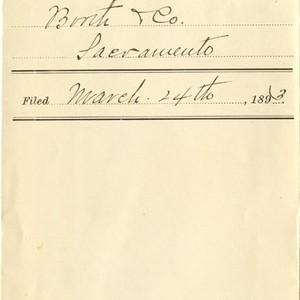 Booth & Co.
Sacramento
Filed March. 24th, 1893.